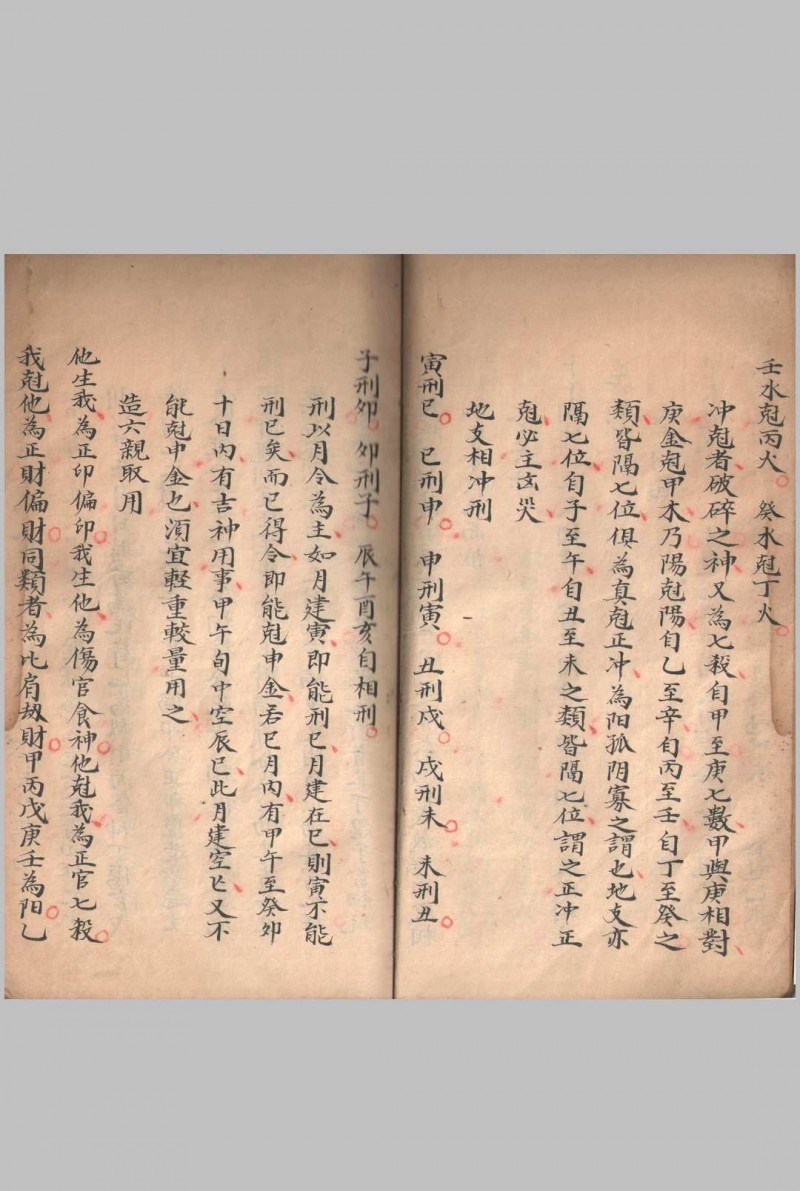 壬水尅丙火。癸水尅丁火。
冲尅者、破碎之神、又為七殺、自甲至庚七數、甲與庚相對、
庚金尅甲木、乃陽尅陽、自乙至辛、自丙至壬、自丁至癸之
類、皆隔七位、俱為真尅正冲、為阳孤阴寡之謂也、地支亦
隔七位、自子至午、自丑至未之類、皆隔七位、謂之正冲正
尅、必主㐫灾、
地支相冲刑
寅刑巳。巳刑申。申刑寅。丑刑戌。戌刑未。未刑丑。
子刑卯。卯刑子。辰午酉亥自相刑。
刑以月令為主、如月建寅、即能刑巳、月建在巳、則寅不能
刑巳矣、而巳得令、即能尅申金、若巳月內、有甲午至癸卯
十日內、有吉神用事、甲午旬中空辰巳、此月建空亡、又不
能尅申金也、須宜輕重較量用之、
造六親取用
他生我、為正印偏印。我生他、為傷官食神。他尅我、為正官七殺。
我尅他、為正財偏財。同類者、為比肩劫財。甲丙戊庚壬為阳。乙